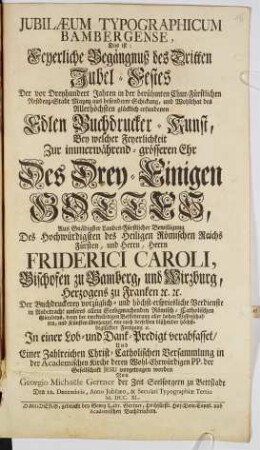 JUBILÆUM TYPOGRAPHICUM
BAMBERGENSE,
Das ist:
Feyerliche Begängnuß des Dritten
Jubel-Festes
Der vor Dreyhundert Jahren in der berühmten Chur-Fürstlichen
Residenz-Stadt Maynz aus besonderer Schickung, und Wohlthat des
Allerhöchsten glücklich erfundenen
Edlen Buchdrucker-Kunst,
Bey welcher Feyerlichkeit
Zur immerwährend-grösseren Ehr
Des Drey-Einigen
GOTTES,
Aus Gnädigster Landes-Fürstlicher Bewilligung
Des Hochwürdigsten des Heiligen Römischen Reichs
Fürsten, und Herrn, Herrn
FRIDERICI CAROLI,
Bischofen zu Bamberg, und Wirzburg,
Herzogens zu Franken ꝛc. ꝛc.
Der Buchdruckerey vorzüglich- und höchst-ersprießliche Verdienste
in Anbetracht unseres allein Seeligmachenden Römisch-Catholischen
Glaubens, dann der nothwendigen Beförderung aller
In einer Lob-und Dank-Predigt verabfasset,
Und
Einer Zahlreichen Christ-Catholischen Versammlung in
der Academischen Kirche deren Wohl-Ehrwürdigen PP. der
Gesellschaft JESU vorgetragen worden
Von
Georgio Michaële Gertner der Zeit Seelsorgern zu Bettstadt
Den 12. Decembris, Anno Jubilæo, & Sæculari Typographiæ Tertio
M. DCC. XL.
BAMBERG, gedruckt bey Georg
Academischen Buchdruckern.